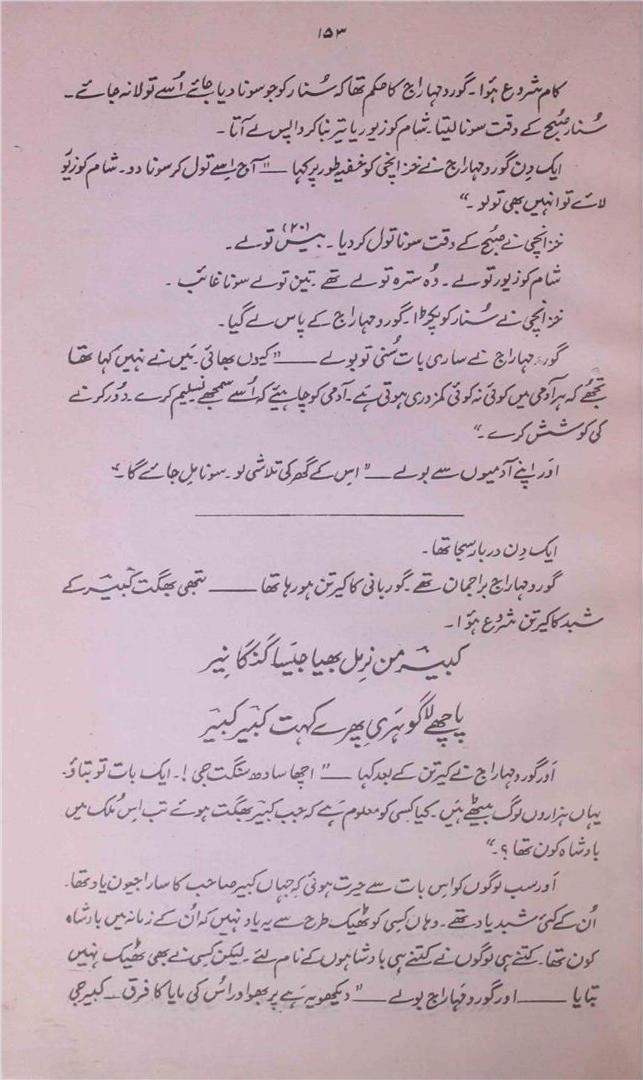 ۱۵۳
کام شروع ہوٴا۔ گورو مہاراج کا حکم تھا کہ سُنار کو جو سونا دیا جائے اُسے تولا نہ جائے۔
سُنار صبُح کے وقت سونا لیتا۔ شام کو زیور یا تیر بنا کر واپس لے آتا۔
ایک دِن گورو مہاراج نے خزانچی کو خفیہ طور پر کہا ــــ "آج اِسے تول کر سونا دو۔ شام کو زیوَر
لائے تو انہیں بھی تولو۔"
خزانچی نے صبُح کے وقت سونا تول کر دیا۔ بیس (۲۰) تولے۔
شام کو زیور تولے۔ وُہ سترہ تولے تھے۔ تین تولے سونا غائب۔
خزانچی نے سُنار کو پکڑا۔ گورو مہاراج کے پاس لے گیا۔
گورو مہاراج نے ساری بات سُنی تو بولے ــــ "کیوں بھائی۔ مَیں نے نہیں کہا تھا
تجھُے کہ ہر آدمی میں کوئی نہ کوئی کمزوری ہوتی ہَے۔ آدمی کو چاہیئے کہ اُسے سمجھے تسلیم کرے۔ دُور کرنے
کی کوشش کرے۔"
اوَر اپنے آدمیوں سے بولے ــــ "اس کے گھر کی تلاشی لو۔ سونا مِل جائے گا۔"
ایک دِن دربار سجا تھا۔
گورو مہاراج براجمان تھے۔ گوربانی کا کیرتن ہو رہا تھا ــــ تبھی بھگت کبیر کے
شبد کا کیرتن شروع ہوٴا۔
کبیر من نِرمل بھیا جیَسا گنگا نِیر
پاچھے لاگو ہَرِی پھِرے کہت کبیر کبیر
اوَر گورو مہاراج نے کیرتن کے بعد کہا ــــ "اچھا سادھ سنگت جی!۔ ایک بات تو بتاؤ۔
یہاں ہزاروں لوگ بیٹھے ہَیں۔ کیا کسی کو معلوم ہَے کہ جب کبیر بھگت ہوئے تب اس مُلک میں
بادشاہ کون تھا؟۔"
اوَر سب لوگوں کو اس بات سے حیرت ہوئی کہ جہاں کبیر صاحب کا سارا جیون یاد تھا۔
اُن کے کئی شبد یاد تھے۔ وہاں کسی کو ٹھیک طرح سے یہ یاد نہیں کہ اُن کے زمانہ میں بادشاہ
کون تھا۔ کتنے ہی لوگوں نے کتنے ہی بادشاہوں کے نام لئے۔ لیکن کسی نے بھی ٹھیک نہیں
بتایا ــــ اور گورو مہاراج بولے ــــ "دیکھو یہ ہَے پربھو اور اُس کی مایا کا فرق۔ کبیر جی